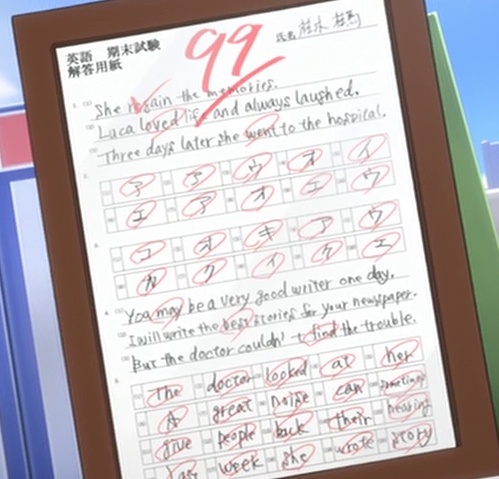 英語 期末試験
解答用紙
99
氏名 桂木 桂馬
1. (1) She regain the memories.
(2) Luca loved life and always laughed.
(3) Three days later she went to the hospital.
2. ア ア ウ オ イ
エ ア オ エ ウ
3. コ オ キ ア ウ
カ ク イ ケ エ
4. (1) You may be a very good writer one day.
(2) I will write the best stories for your newspaper.
(3) But the doctor couldn't find the trouble.
The doctor looked at her
A great noise can sometimes
give people back their hearing
week she wrote story